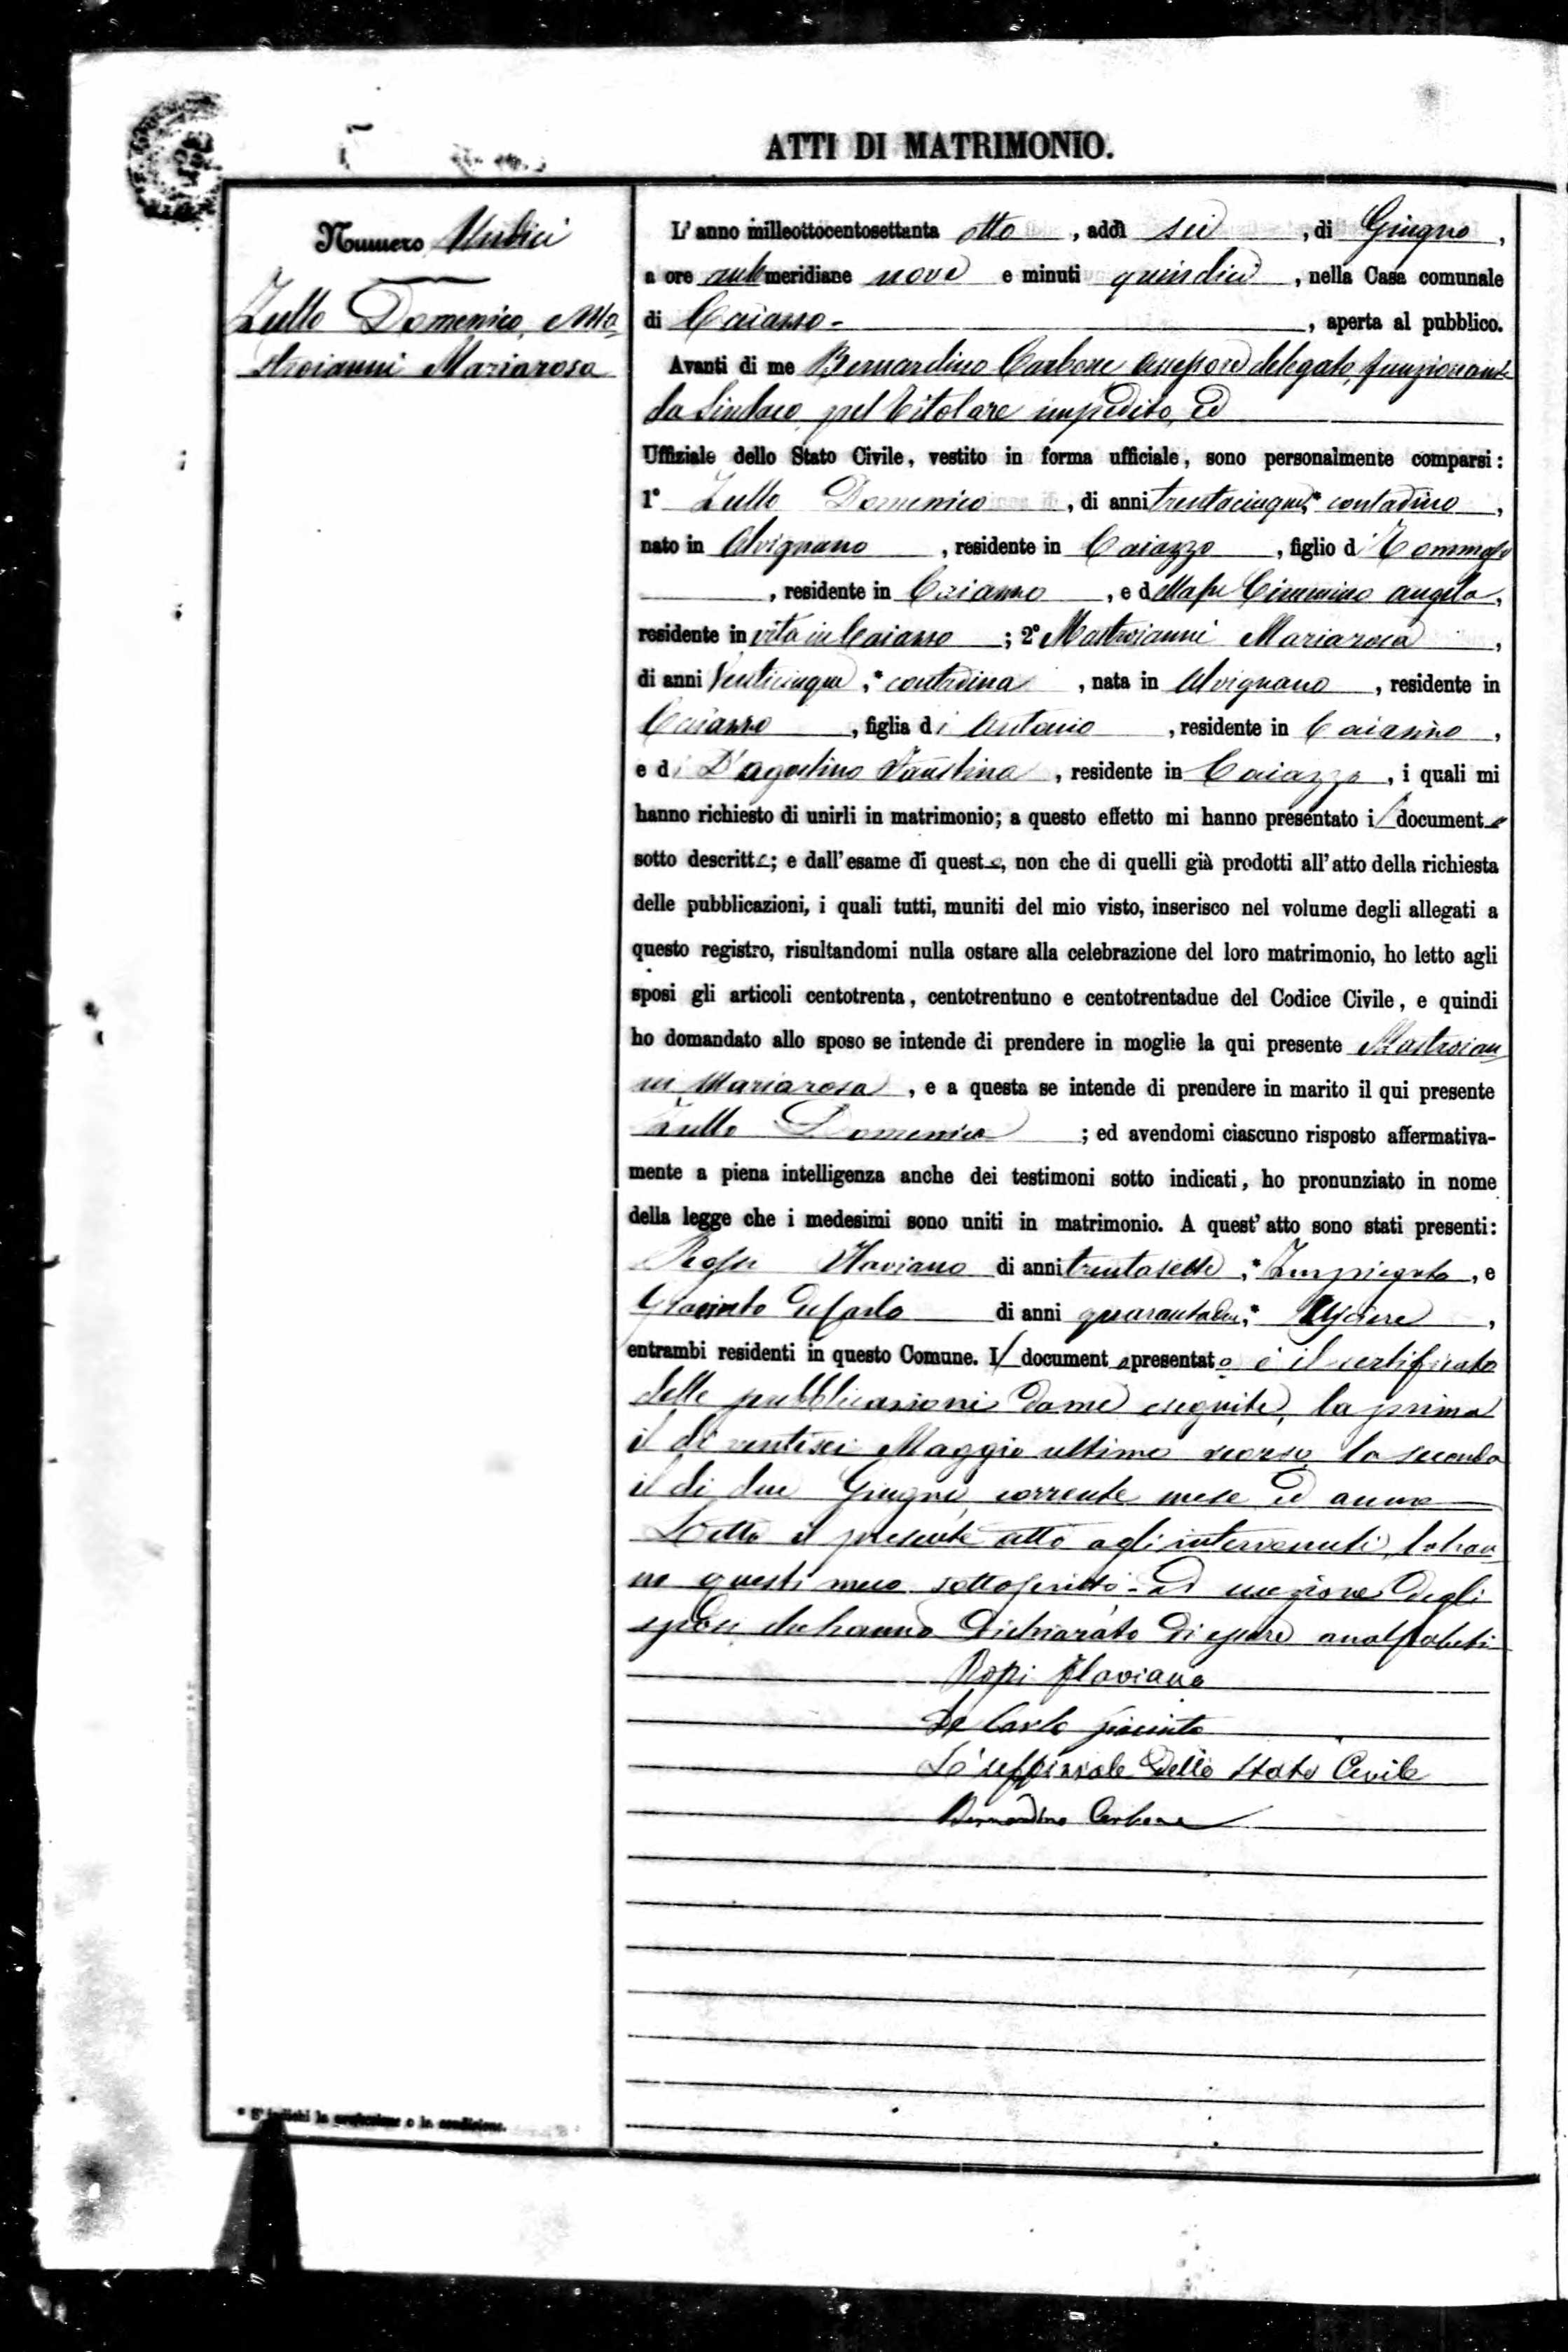 ATTI DI MATRIMONIO.
Numero Undici
Zullo Domenico, Ma
stroianni Mariarosa
L'anno milleottocentosettanta otto, addì sei, di Giugno,
a ore antimeridiane nove e minuti quindici, nella Casa comunale
di Caiazzo-, aperta al pubblico.
Avanti di me Bernardino Carbone assessore delegato, funzionante
da Sindaco pel titolare impedito, ed
Uffiziale dello Stato Civile, vestito in forma ufficiale, sono personalmente comparsi:
1° Zullo Domenico, di anni trentacinque,* contadino,
nato in Alvignano, residente in Caiazzo, figlio di Tommaso
, residente in Caiazzo, e della fu Cimmino Angela,
residente in vita in Caiazzo; 2° Mastroianni Mariarosa,
di anni Venticinque,* contadina, nata in Alvignano, residente in
Caiazzo, figlia di Antonio, residente in Caiazzo,
e di D'agostino Faustina, residente in Caiazzo, i quali mi
hanno richiesto di unirli in matrimonio; a questo effetto mi hanno presentato il documento
sotto descritto; e dall'esame di questo, non che di quelli già prodotti all'atto della richiesta
delle pubblicazioni, i quali tutti, muniti del mio visto, inserisco nel volume degli allegati a
questo registro, risultandomi nulla ostare alla celebrazione del loro matrimonio, ho letto agli
sposi gli articoli centotrenta, centotrentuno e centotrentadue del Codice Civile, e quindi
ho domandato allo sposo se intende di prendere in moglie la qui presente Mastroian
ni Mariarosa, e a questa se intende di prendere in marito il qui presente
Zullo Domenico; ed avendomi ciascuno risposto affermativa-
mente a piena intelligenza anche dei testimoni sotto indicati, ho pronunziato in nome
della legge che i medesimi sono uniti in matrimonio. A quest'atto sono stati presenti:
Rossi Flaviano di anni trentasette,* Impiegato, e
Giacinto de Carlo di anni quarantadue,* Usciere,
entrambi residenti in questo Comune. Il documento presentato è il certificato
delle pubblicazioni da me eseguite, la prima
il di ventisei Maggio ultimo scorso, la seconda
il di due Giugno corrente mese ed anno
Letto il presente atto agli intervenuti, l'han
no questi meco sottoscritto - ad eccezione degli
sposi che hanno dichiarato di essere analfabeti
Rossi Flaviano
De Carlo Giacinto
L'uffiziale dello Stato Civile
Bernardino Carbone
* S'indichi la professione o la condizione.